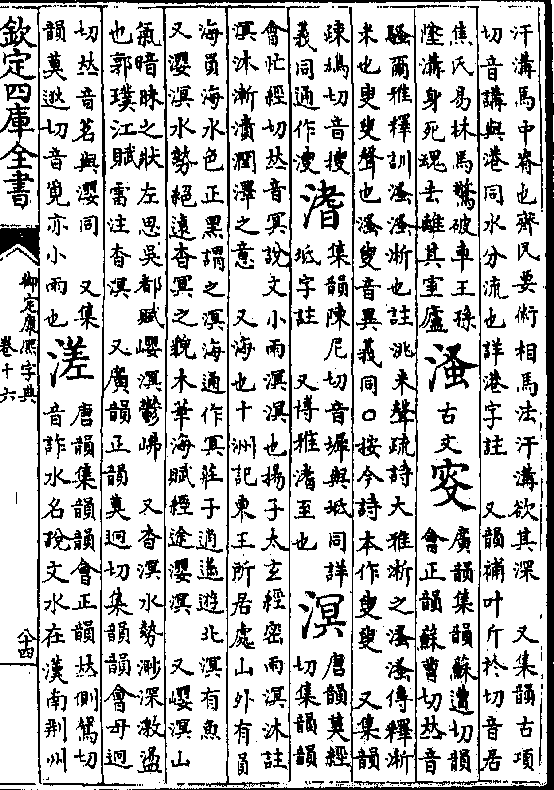 汗溝馬中脊也齊民要術相馬法汗溝欲其深　又集韻古項
切音講與港同水分流也詳港字註　又韻補叶斤於切音居
焦氏易林馬驚破車王孫
墮溝身死魂去離其室廬
溞
古文
㝊
廣韻集韻蘇遭切韻
會正韻蘇曹切𠀤音
騷爾雅釋訓溞溞淅也註洮米聲疏詩大雅淅之溞溞傳釋淅
米也叟叟聲也溞叟音異義同○按今詩本作叟叟　又集韻
疎鳩切音搜
義同通作溲
集韻陳尼切音墀與坻同詳
坻字註　又博雅至也
溟
唐韻莫經
切集韻韻
會忙經切𠀤音冥說文小雨溟溟也揚子太玄經密雨溟沐註
溟沐漸漬潤澤之意　又海也十洲記東王所居處山外有員
海員海水色正黑謂之溟海通作冥莊子逍遙遊北溟有魚
又瀴溟水勢絕遠杳冥之貌木華海賦經途瀴溟　又㠛溟山
氣暗昧之狀左思吳都賦㠛溟鬱岪　又杳溟水勢渺深滶盪
也郭璞江賦霤注杳溟　又廣韻正韻莫迥切集韻韻會母迥
切𠀤音茗與瀴同　又集
韻莫逖切音覓亦小雨也
溠
唐韻集韻韻會正韻𠀤側駕切
音詐水名說文水在漢南荊州
欽定四庫全書
御定康熙字典
卷十六
八十四